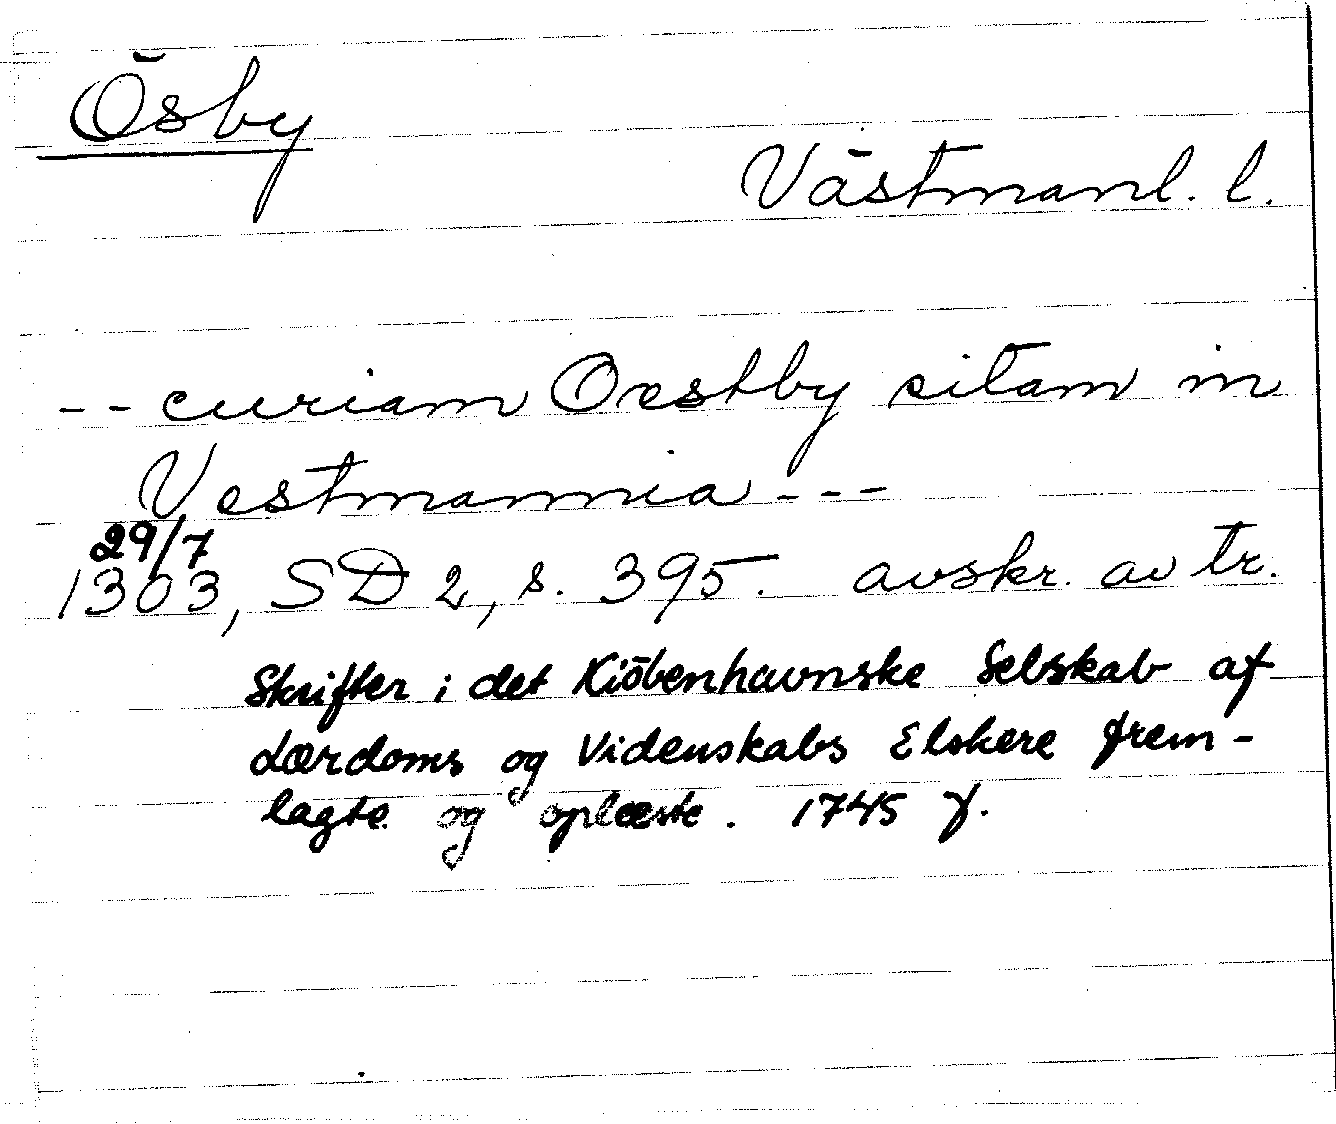 Ösby
Västmanl. l.
-- curiam Oestby sitam in
Vestmannia ---
29/7
1303, SD 2, s. 395. avskr. av tr.
Skrifter i det Kiöbenhavnske Selskab af
Lærdoms og Videnskabs Elskere frem-
lagte og oplæste. 1745 f.